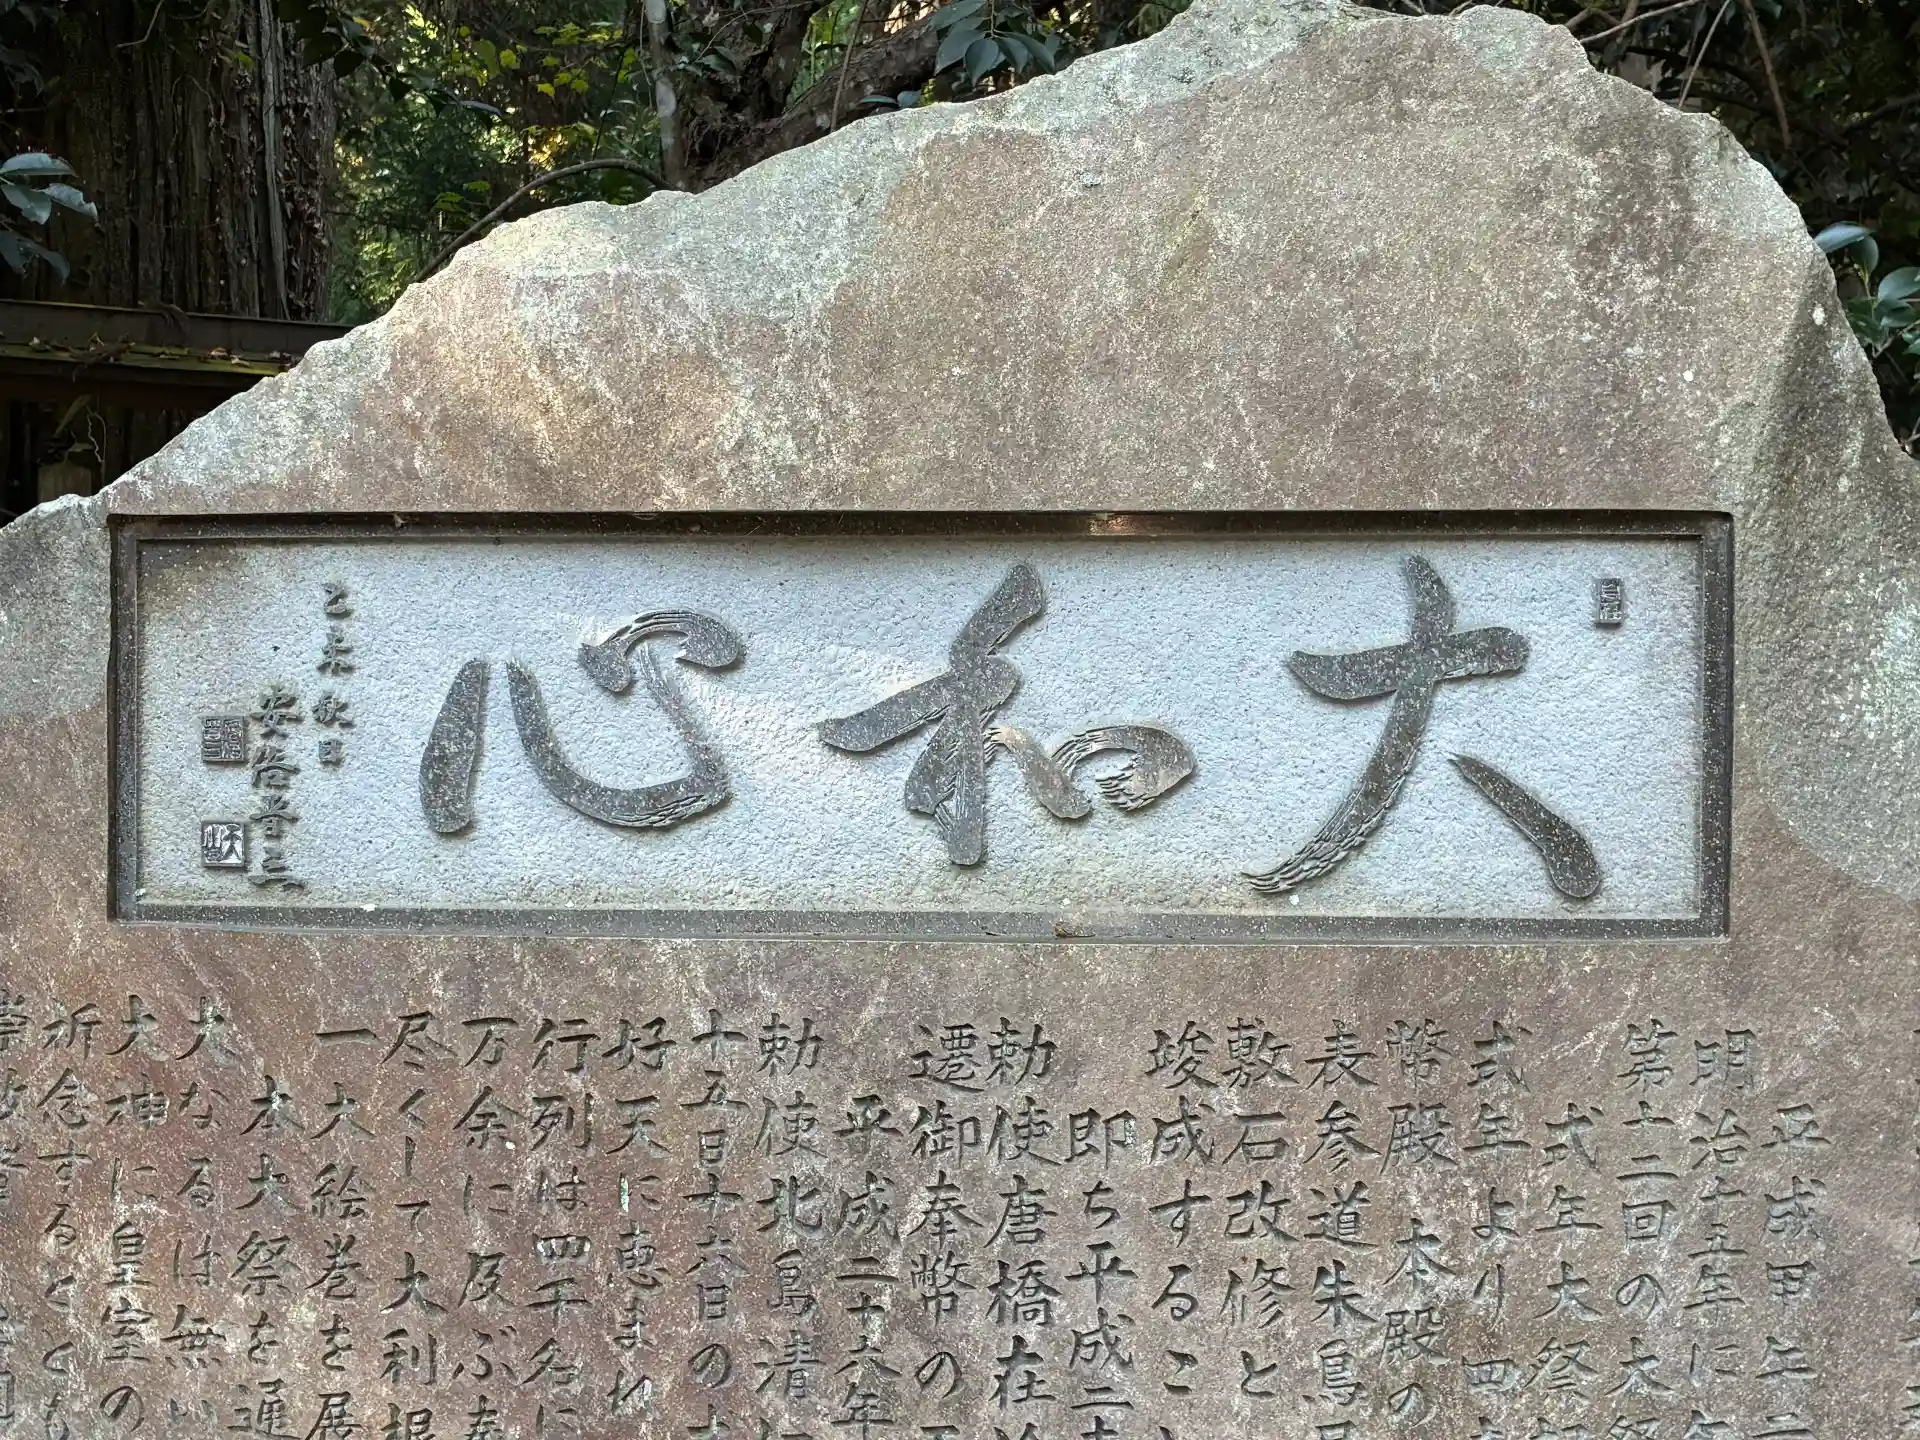 大和心
乙未秋日
安倍晋三
平成甲午二
明治十五年に年
第十二回の大祭
式年大祭
式年より四
幣殿、本殿の
表参道朱鳥居
敷石改修と
竣成すること
即ち平成二十
勅使唐橋在
遷御奉幣の
平成二十六年
勅使北島清仁
十五日十六日の大
好天に恵まれ
行列は四千名に
万余に及ぶ
尽くして大利根
一大絵巻を展
本大祭を通
大なるは無い
大神に皇室の
祈念するととも
崇敬者